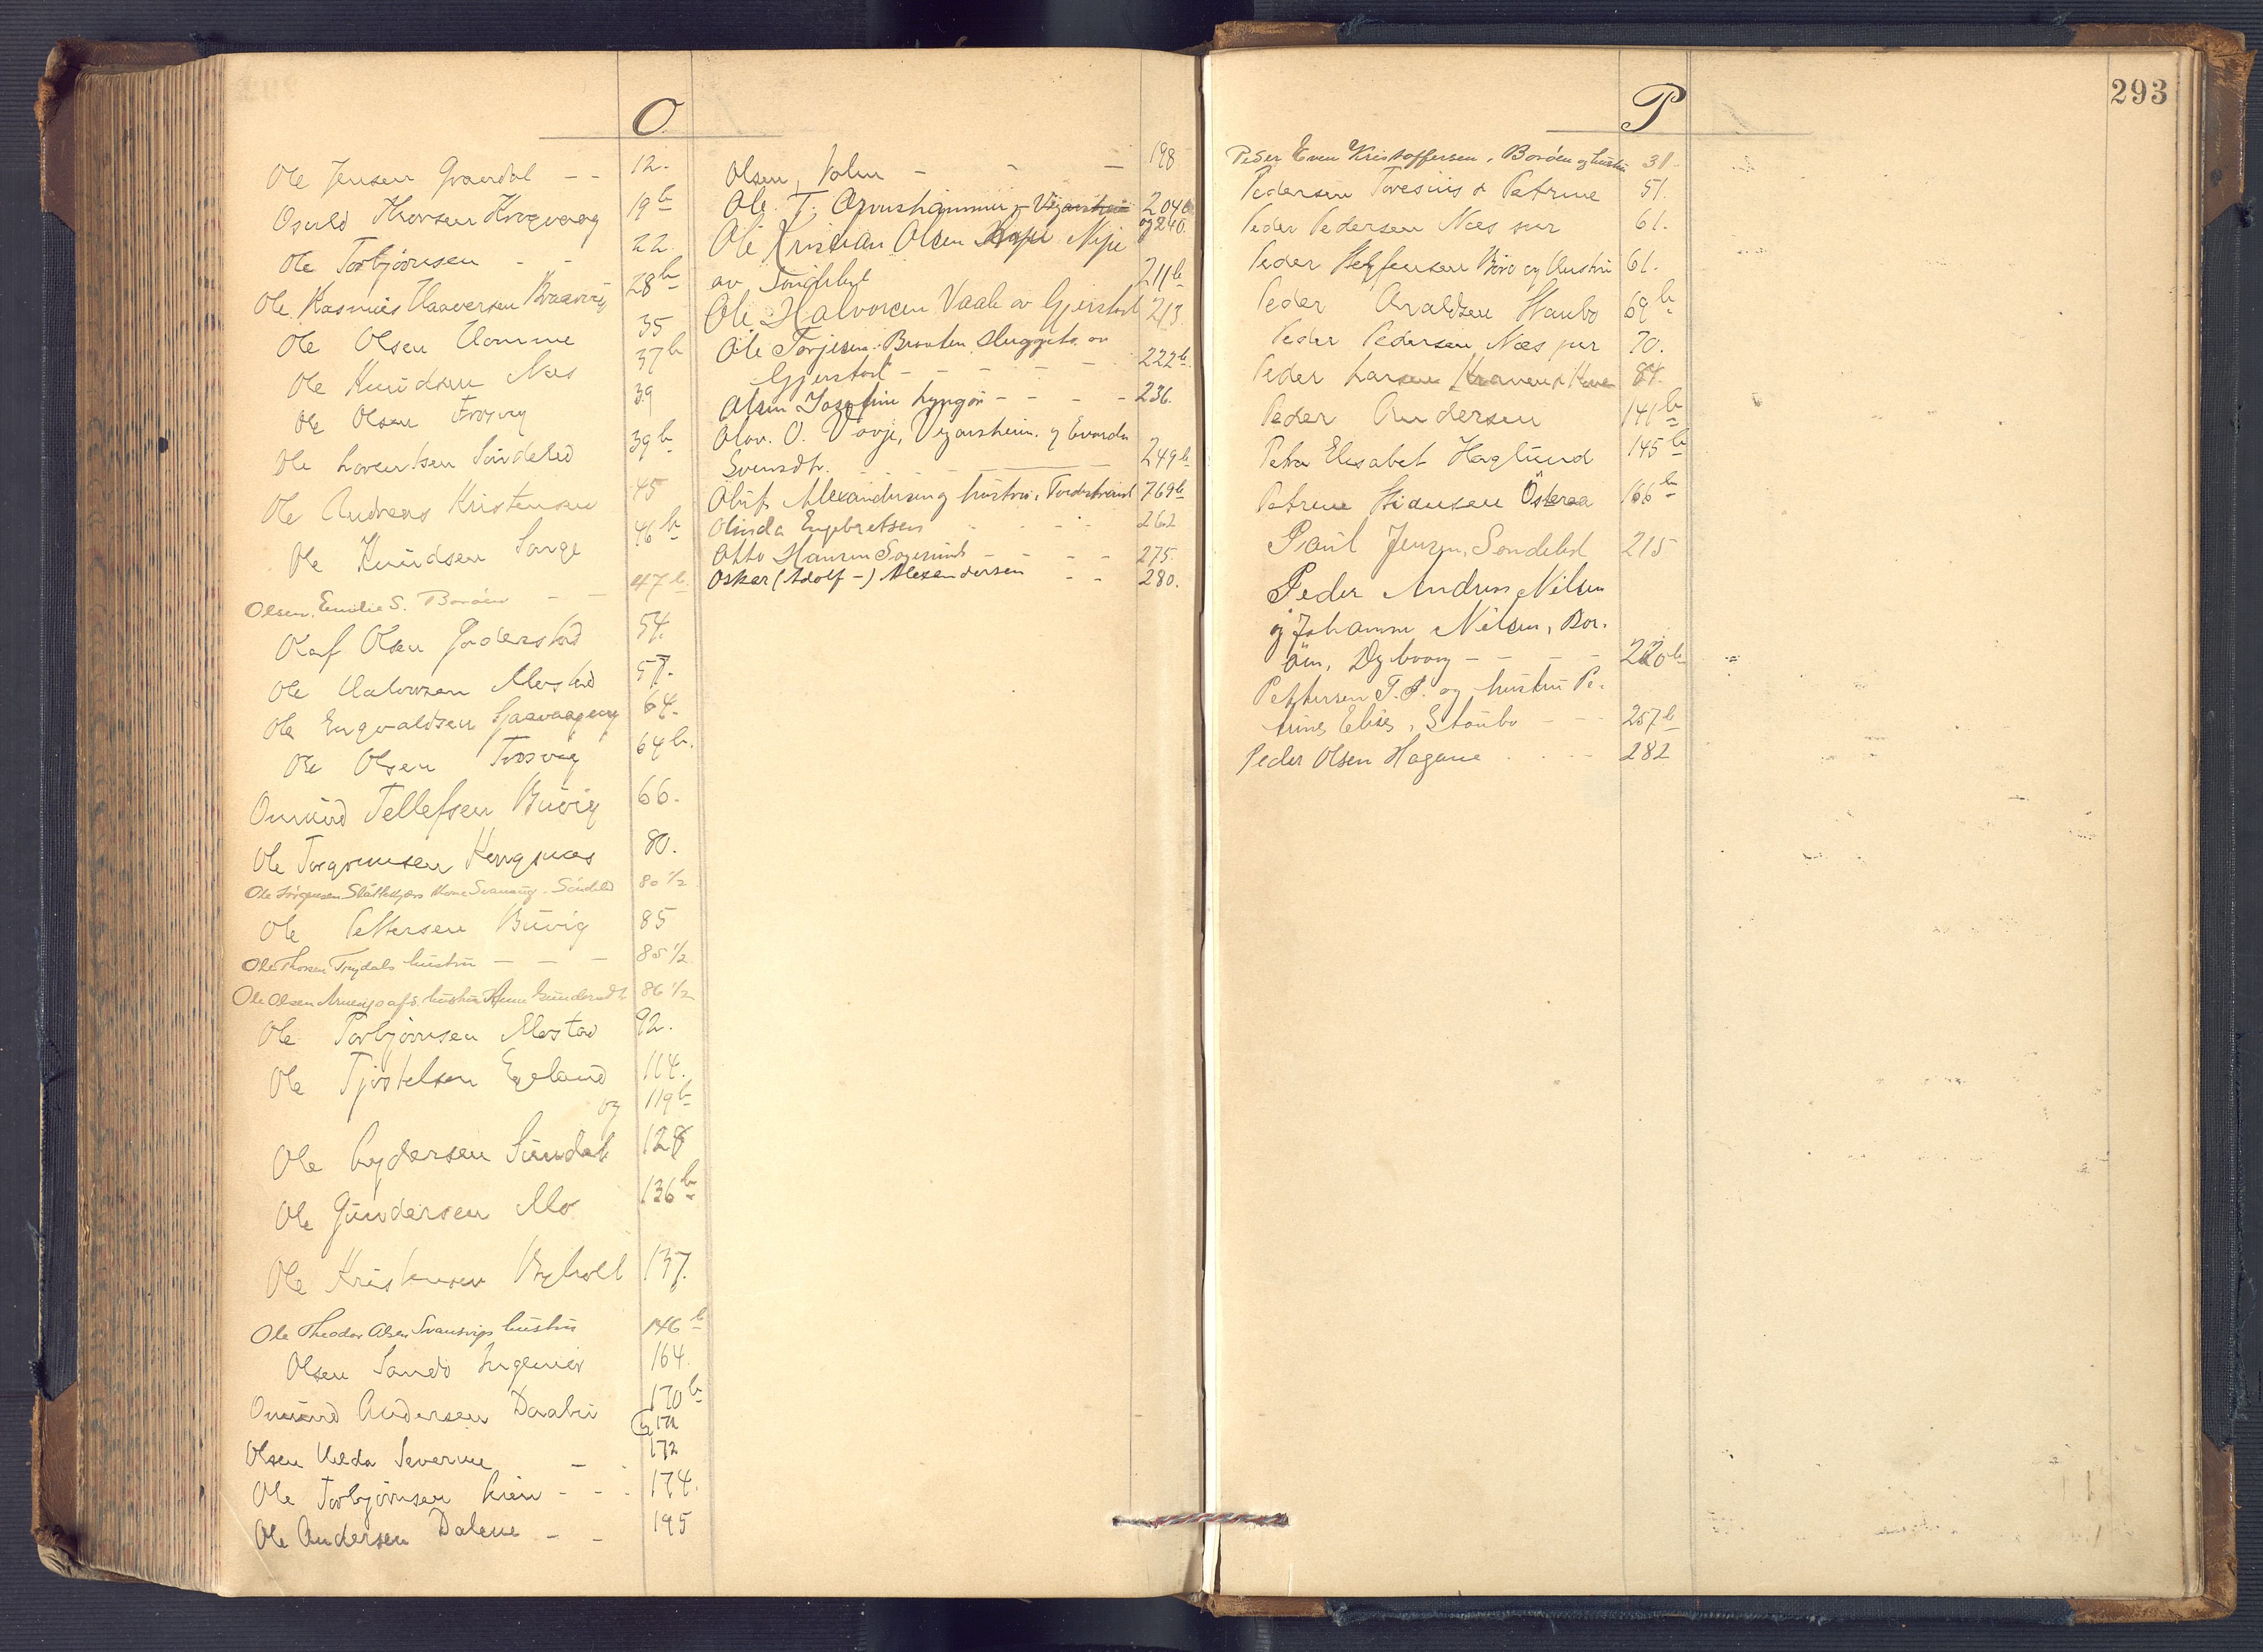 O.
Ole Jensen Graadal - - 12.
Osuld Thorsen Krogvaag 19b
Ole Torbjørnsen - - 22.
Ole Rasmus Haaversen 28b
Ole Olsen Homme 35
Ole Knudsen Næs 37b
Ole Olsen Frøsvig 39
Ole Lorentsen Søndeled 39b
Ole Andreas Kristensen 45
Ole Knudsen Songe 46b
Olsen, Emilie S. Borøen - - 47b
Olaf Olsen Goderstad 54.
Ole Halvorsen Mostad 57.
Ole Engvaldsen 64.
Ole Olsen 64b.
Omund Tellefsen Buvig 66.
Ole Torgrimsen 80.
Ole Jørgensen Kone Søndeled 80 1/2
Ole Pettersen Buvig 85
Ole Thorsen Trydals hustru - - - 85 1/2
Ole Olsen hustru Gundersdt. 86 1/2
Ole Torbjørnsen Mostad 92.
Ole Tjøstelsen Egeland 114.
og 119b
Ole Lydersen Sundet 128
Ole Gundersen Mo 136b
Ole Kristensen 137.
Ole Theodor Olsen Svansvigs hustru 146b
Olsen Sandø Ingeniør 164.
Omund Andersen Daabu 170b
171
Olsen Helda Severine - 172
Ole Torbjørnsen Lien - - - 174.
Ole Andersen Dalene - - 195
Olsen, - - 198
Ole T. 204b
og 240.
Ole Kristian Olsen Nipe
av Søndeled 211b
Ole Halvorsen Vaale av Gjerstad 213
Ole Torjesen Brauten av
Gjerstad - - - - - 222b
Olsen Josefine Lyngør - - - - 236.
Olav O. Vegarsheim. og
Svensdtr. 249b
Oluf Alexandersen og hustru, Tvedestrand 769b
Olinda Engebretsen 262
Otto Hansen Sagesund - - - - 275.
Osker (Adolf -) Alexandersen - - 280.
293
P
Peder Even Kristoffersen, Borøen og hustru 31
Pedersen Toresius & Petrine 51.
Peder Pedersen Næs 61.
Peder Steffensen Borø og Hustru 61.
Peder Avaldsen Staubø 69b
Peder Pedersen Næs jur 70.
Peder Larsen 84.
Peder Andersen 141b
Petra Elisabet Haglund 145b
Petrine Hansen Österaa 166b
Paul Jensen, Søndeled 215
Peder Andreas Nilsen
og Johanne Nilsen, Bor-
öen, Dybvaag - - - - 220b
Pettersen T. P. og hustru Pe-
trine Elise, Staubø - - - 257b
Peder Olsen Hagane 282